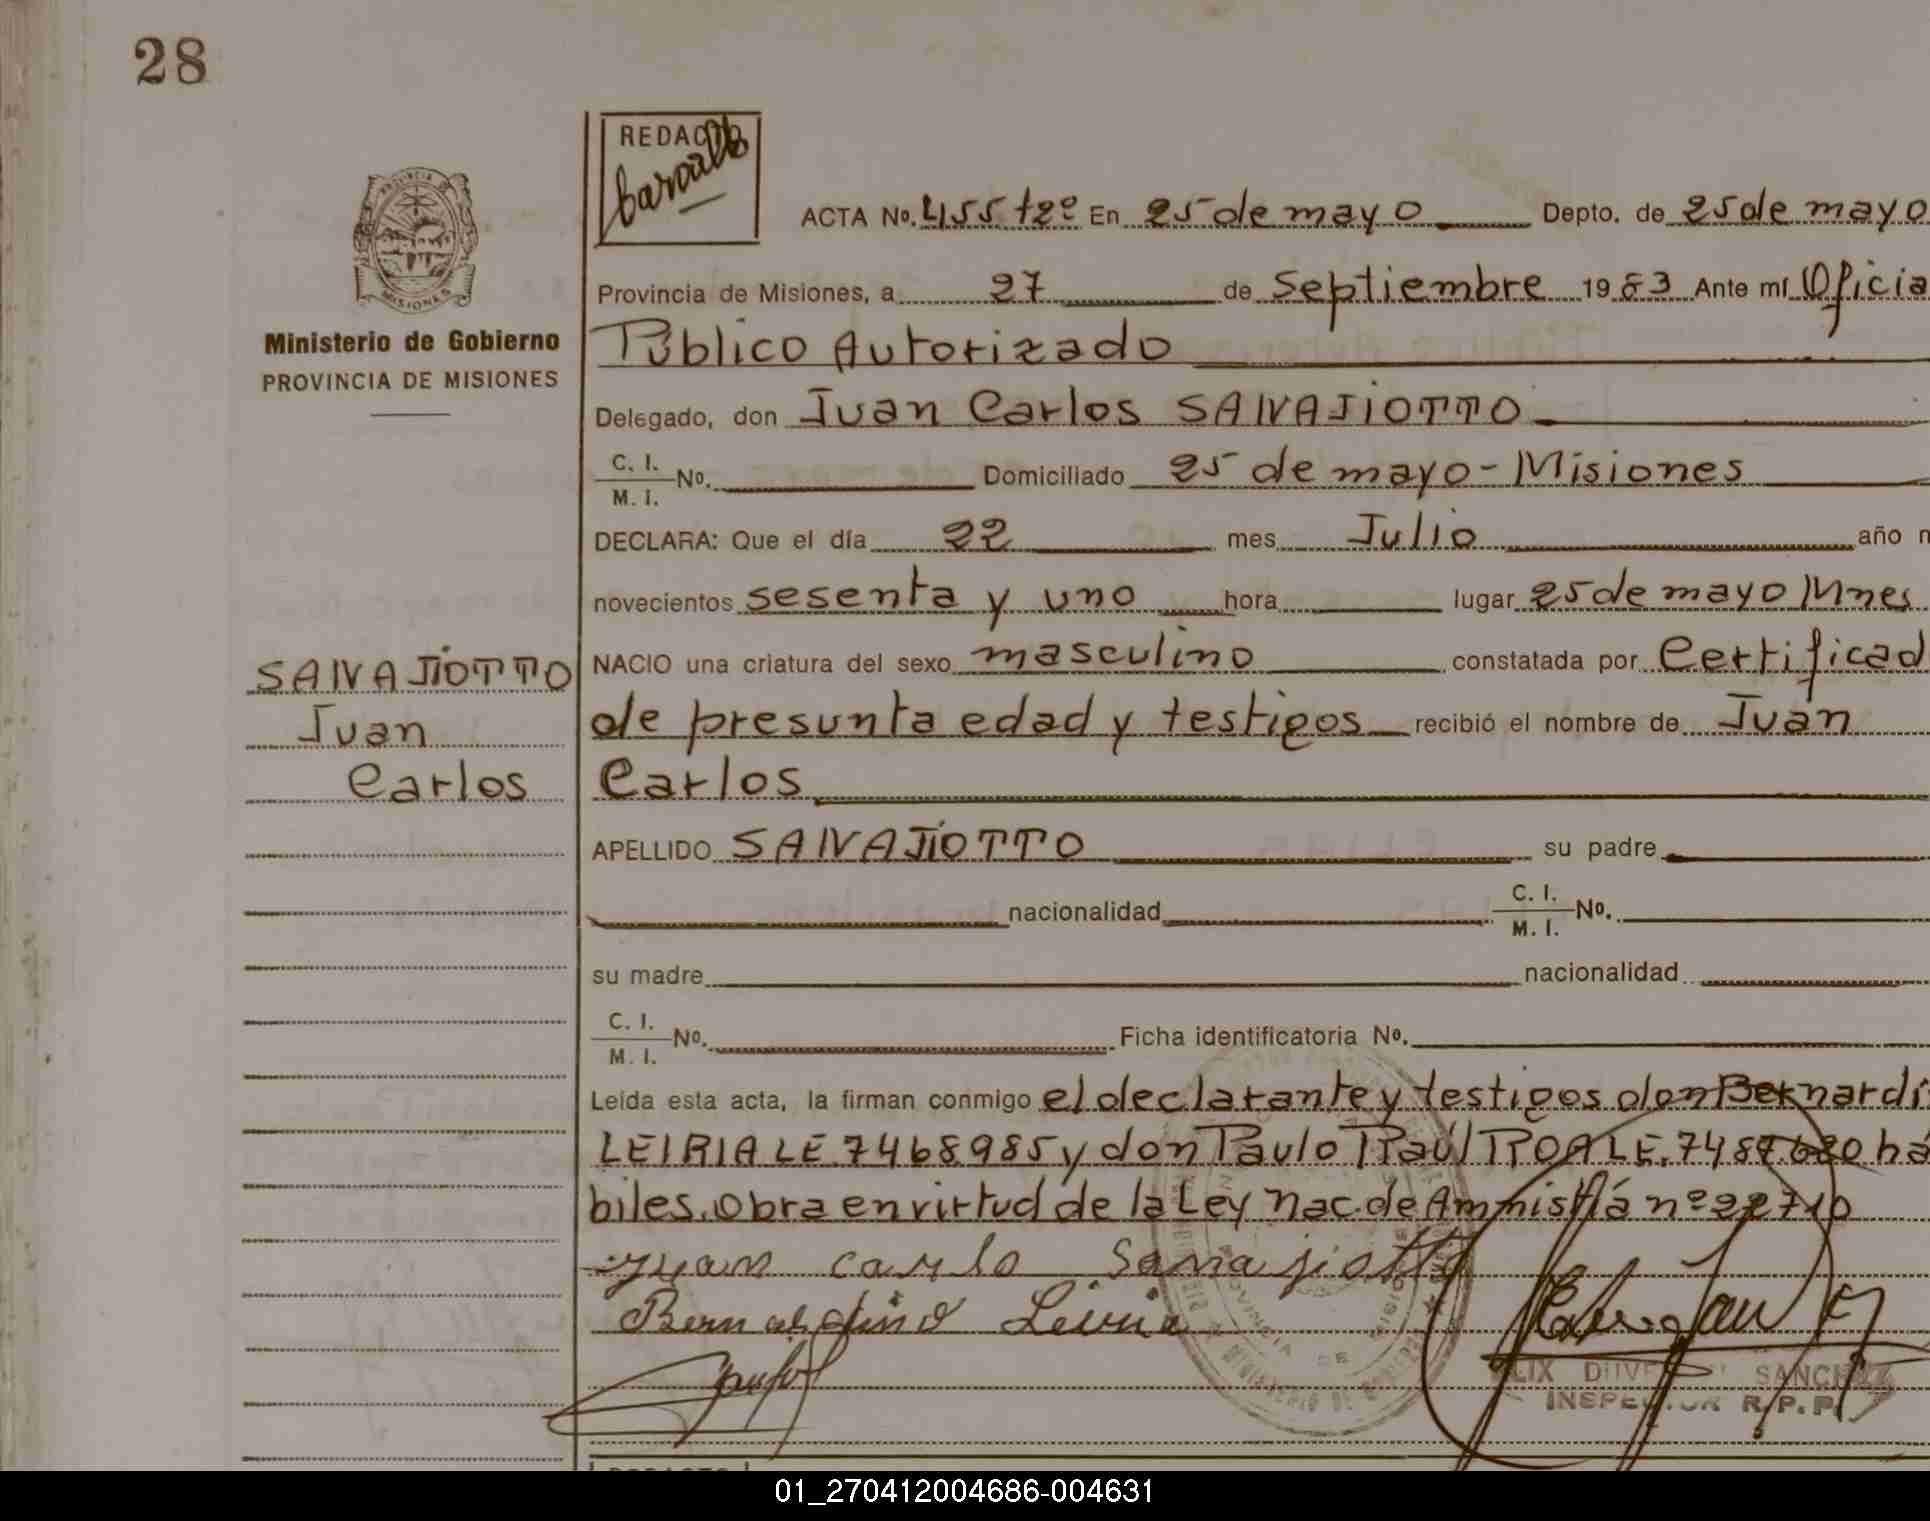 28
REDACTO
PROVINCIA DE
MISIONES
ACTA No. 455 tº2º En 25 de mayo Depto. de 25 de mayo
Provincia de Misiones, a 27 de Septiembre 1983 Ante mí Oficia
Ministerio de Gobierno
Público Autorizado
PROVINCIA DE MISIONES
Delegado, don Juan Carlos SALVAJIOTTO
C. I. No. Domiciliado 25 de mayo - Misiones
M. I.
DECLARA: Que el día 22 mes Julio año m
novecientos sesenta y uno hora lugar 25 de mayo Mnes
SALVAJIOTTO
NACIO una criatura del sexo masculino constatada por Certificad
Juan
de presunta edad y testigos recibió el nombre de Juan
Carlos
Carlos
APELLIDO SALVAJIOTTO su padre
nacionalidad C. I. No.
M. I.
su madre nacionalidad
C. I. No. Ficha identificatoria No.
M. I.
Leída esta acta, la firman conmigo el declarante y testigos don Bernardi
LEIRIA LE.7468985 y don Paulo Raúl ROA LE.7487.620 há
biles. Obra en virtud de la Ley Nac. de Amnistía nº 22710
juan carlo
Bernardino Leiria
SANCHEZ
INSPECTOR R.P.P.
01_270412004686-004631